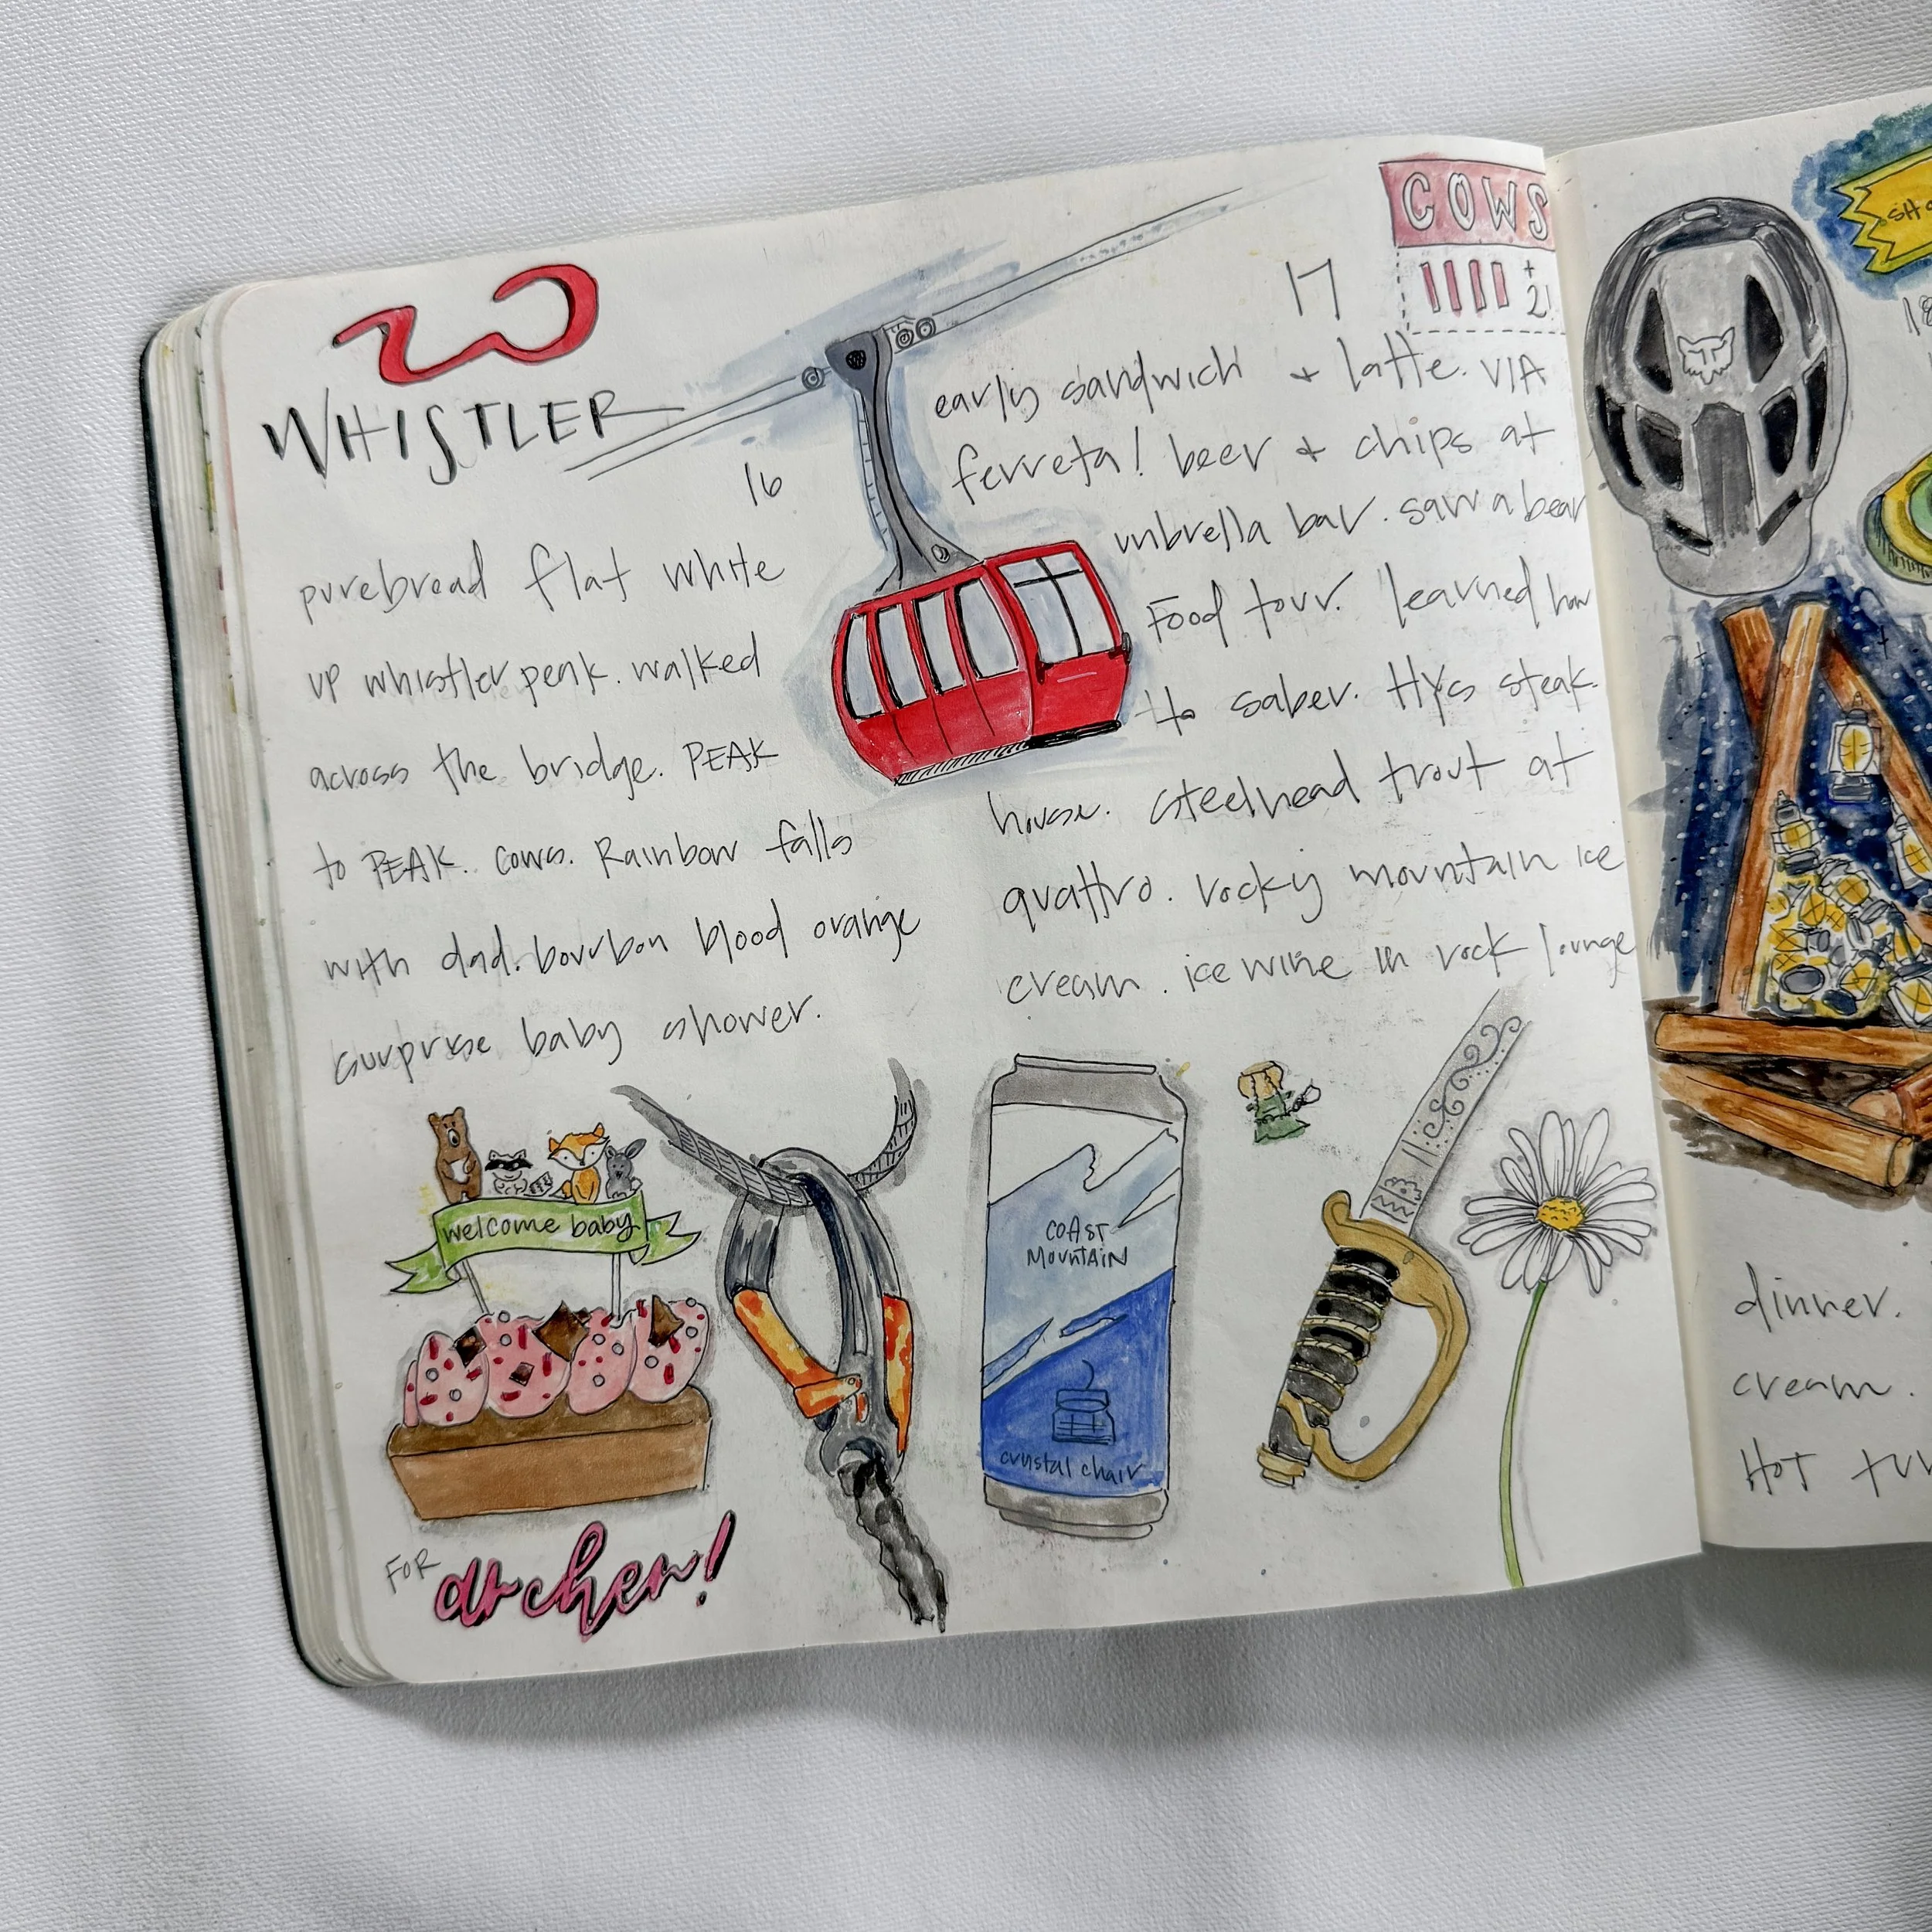 WHISTLER
16
purebread flat white
up whistler peak. walked
across the bridge. PEAK
to PEAK. cows. Rainbow falls
with dad. bourbon blood orange
surprise baby shower.
welcome baby
FOR dr chen!
17
COWS
+
2!
early sandwich + latte. VIA
ferreta! beer + chips at
umbrella bar. saw a bear
Food tour. learned how
to saber. Hys steak
house. steelhead trout at
quattro. rocky mountain ice
cream. ice wine in rock lounge
COAST
MOUNTAIN
crystal chair
dinner.
cream.
HOT